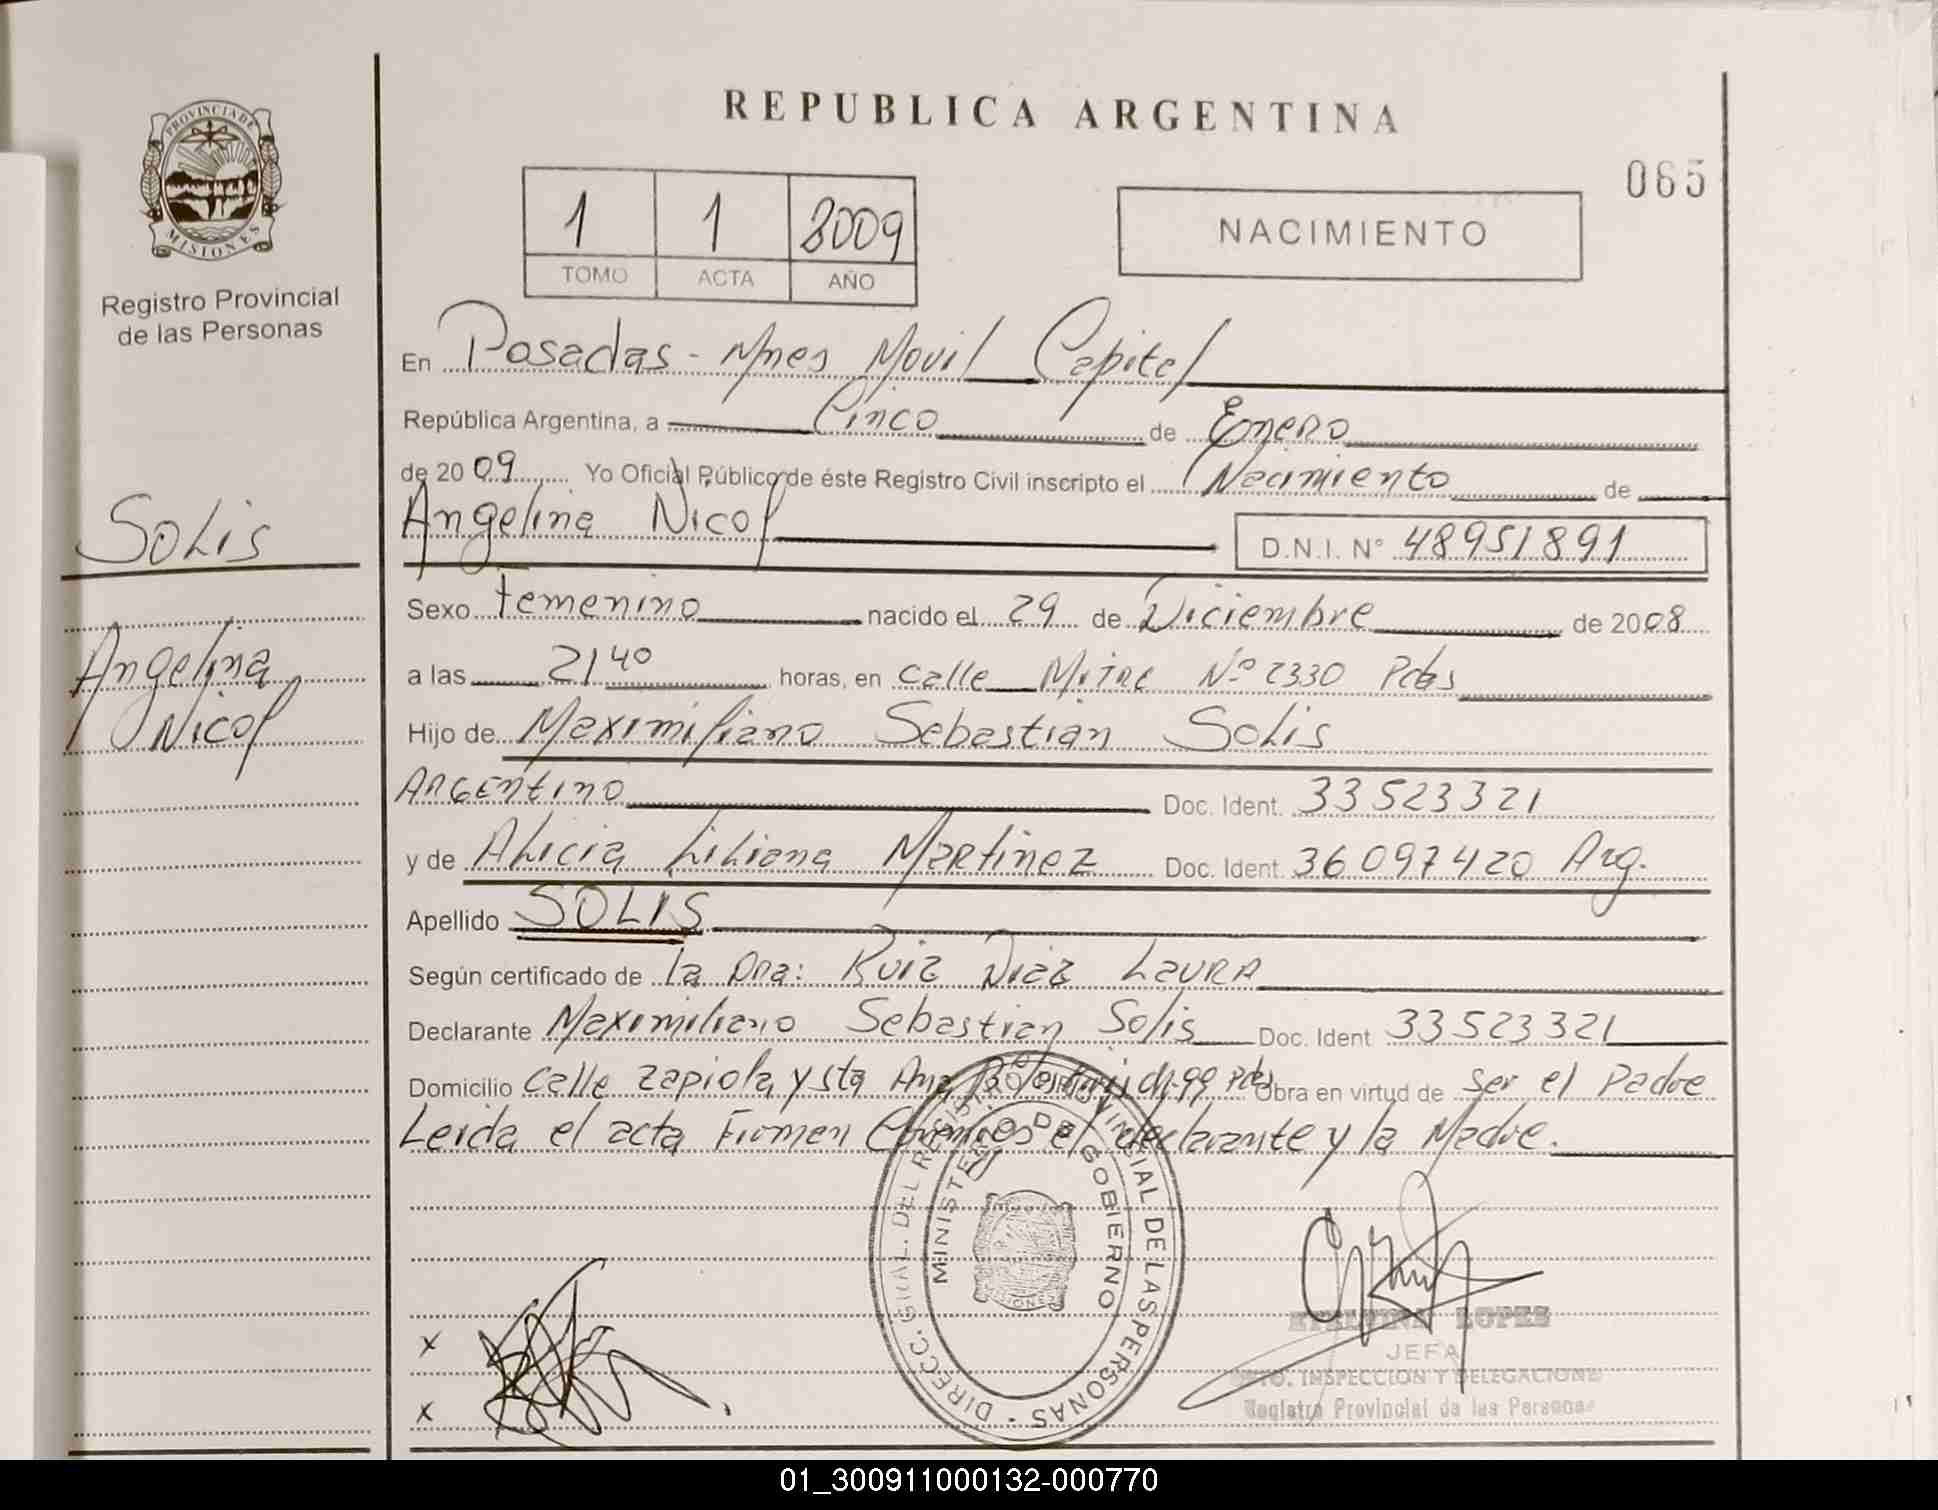 REPUBLICA ARGENTINA
PROVINCIA DE
MISIONES
Registro Provincial
de las Personas
065
1 1 2009
TOMO ACTA AÑO
NACIMIENTO
En Posadas - Mnes Movil Capital
República Argentina, a Cinco de Enero
de 2009 Yo Oficial Público de éste Registro Civil inscripto el Nacimiento de
Angelina Nicol D.N.I. Nº 48951891
Solis
Angelina
Nicol
Sexo Femenino nacido el 29 de Diciembre de 2008
a las 21 40 horas, en Calle Mitre Nº 2330 Pdas
Hijo de Maximiliano Sebastian Solis
Argentino Doc. Ident. 33523321
y de Alicia Liliana Martinez Doc. Ident. 36097420 Arg.
Apellido SOLIS
Según certificado de la Dra: Ruiz Diaz Laura
Declarante Maximiliano Sebastian Solis Doc. Ident 33523321
Domicilio Calle Zapiola y sta Ana Bº ch-99 Pdas Obra en virtud de ser el Padre
Leida el acta Firman el declarante y la Madre.
DIRECC. GRAL. DEL REGISTRO PROVINCIAL DE LAS PERSONAS
MINISTERIO DE GOBIERNO
x
x
LOPEZ
JEFA
INSPECCION Y DELEGACIONES
Registro Provincial de las Personas
01_300911000132-000770